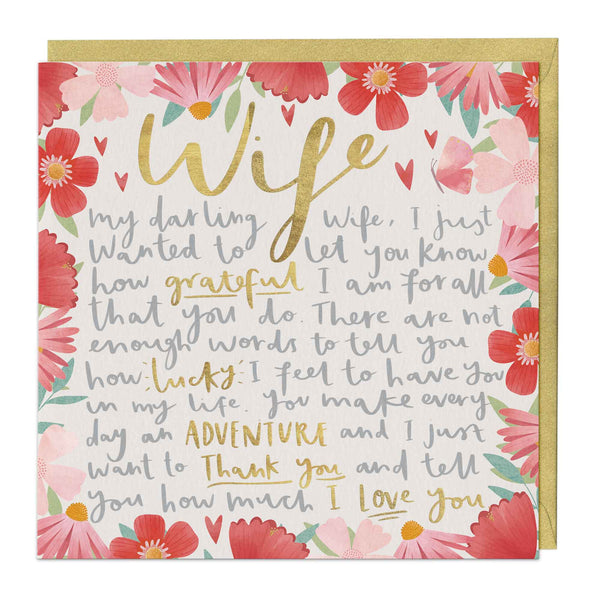 Wife
my darling Wife, I just
Wanted to let you Know
how grateful I am for all
that you do. There are not
enough words to tell you
how lucky I feel to have you
in my life. You make every
day an ADVENTURE and I just
want to Thank you and tell
you how much I Love you